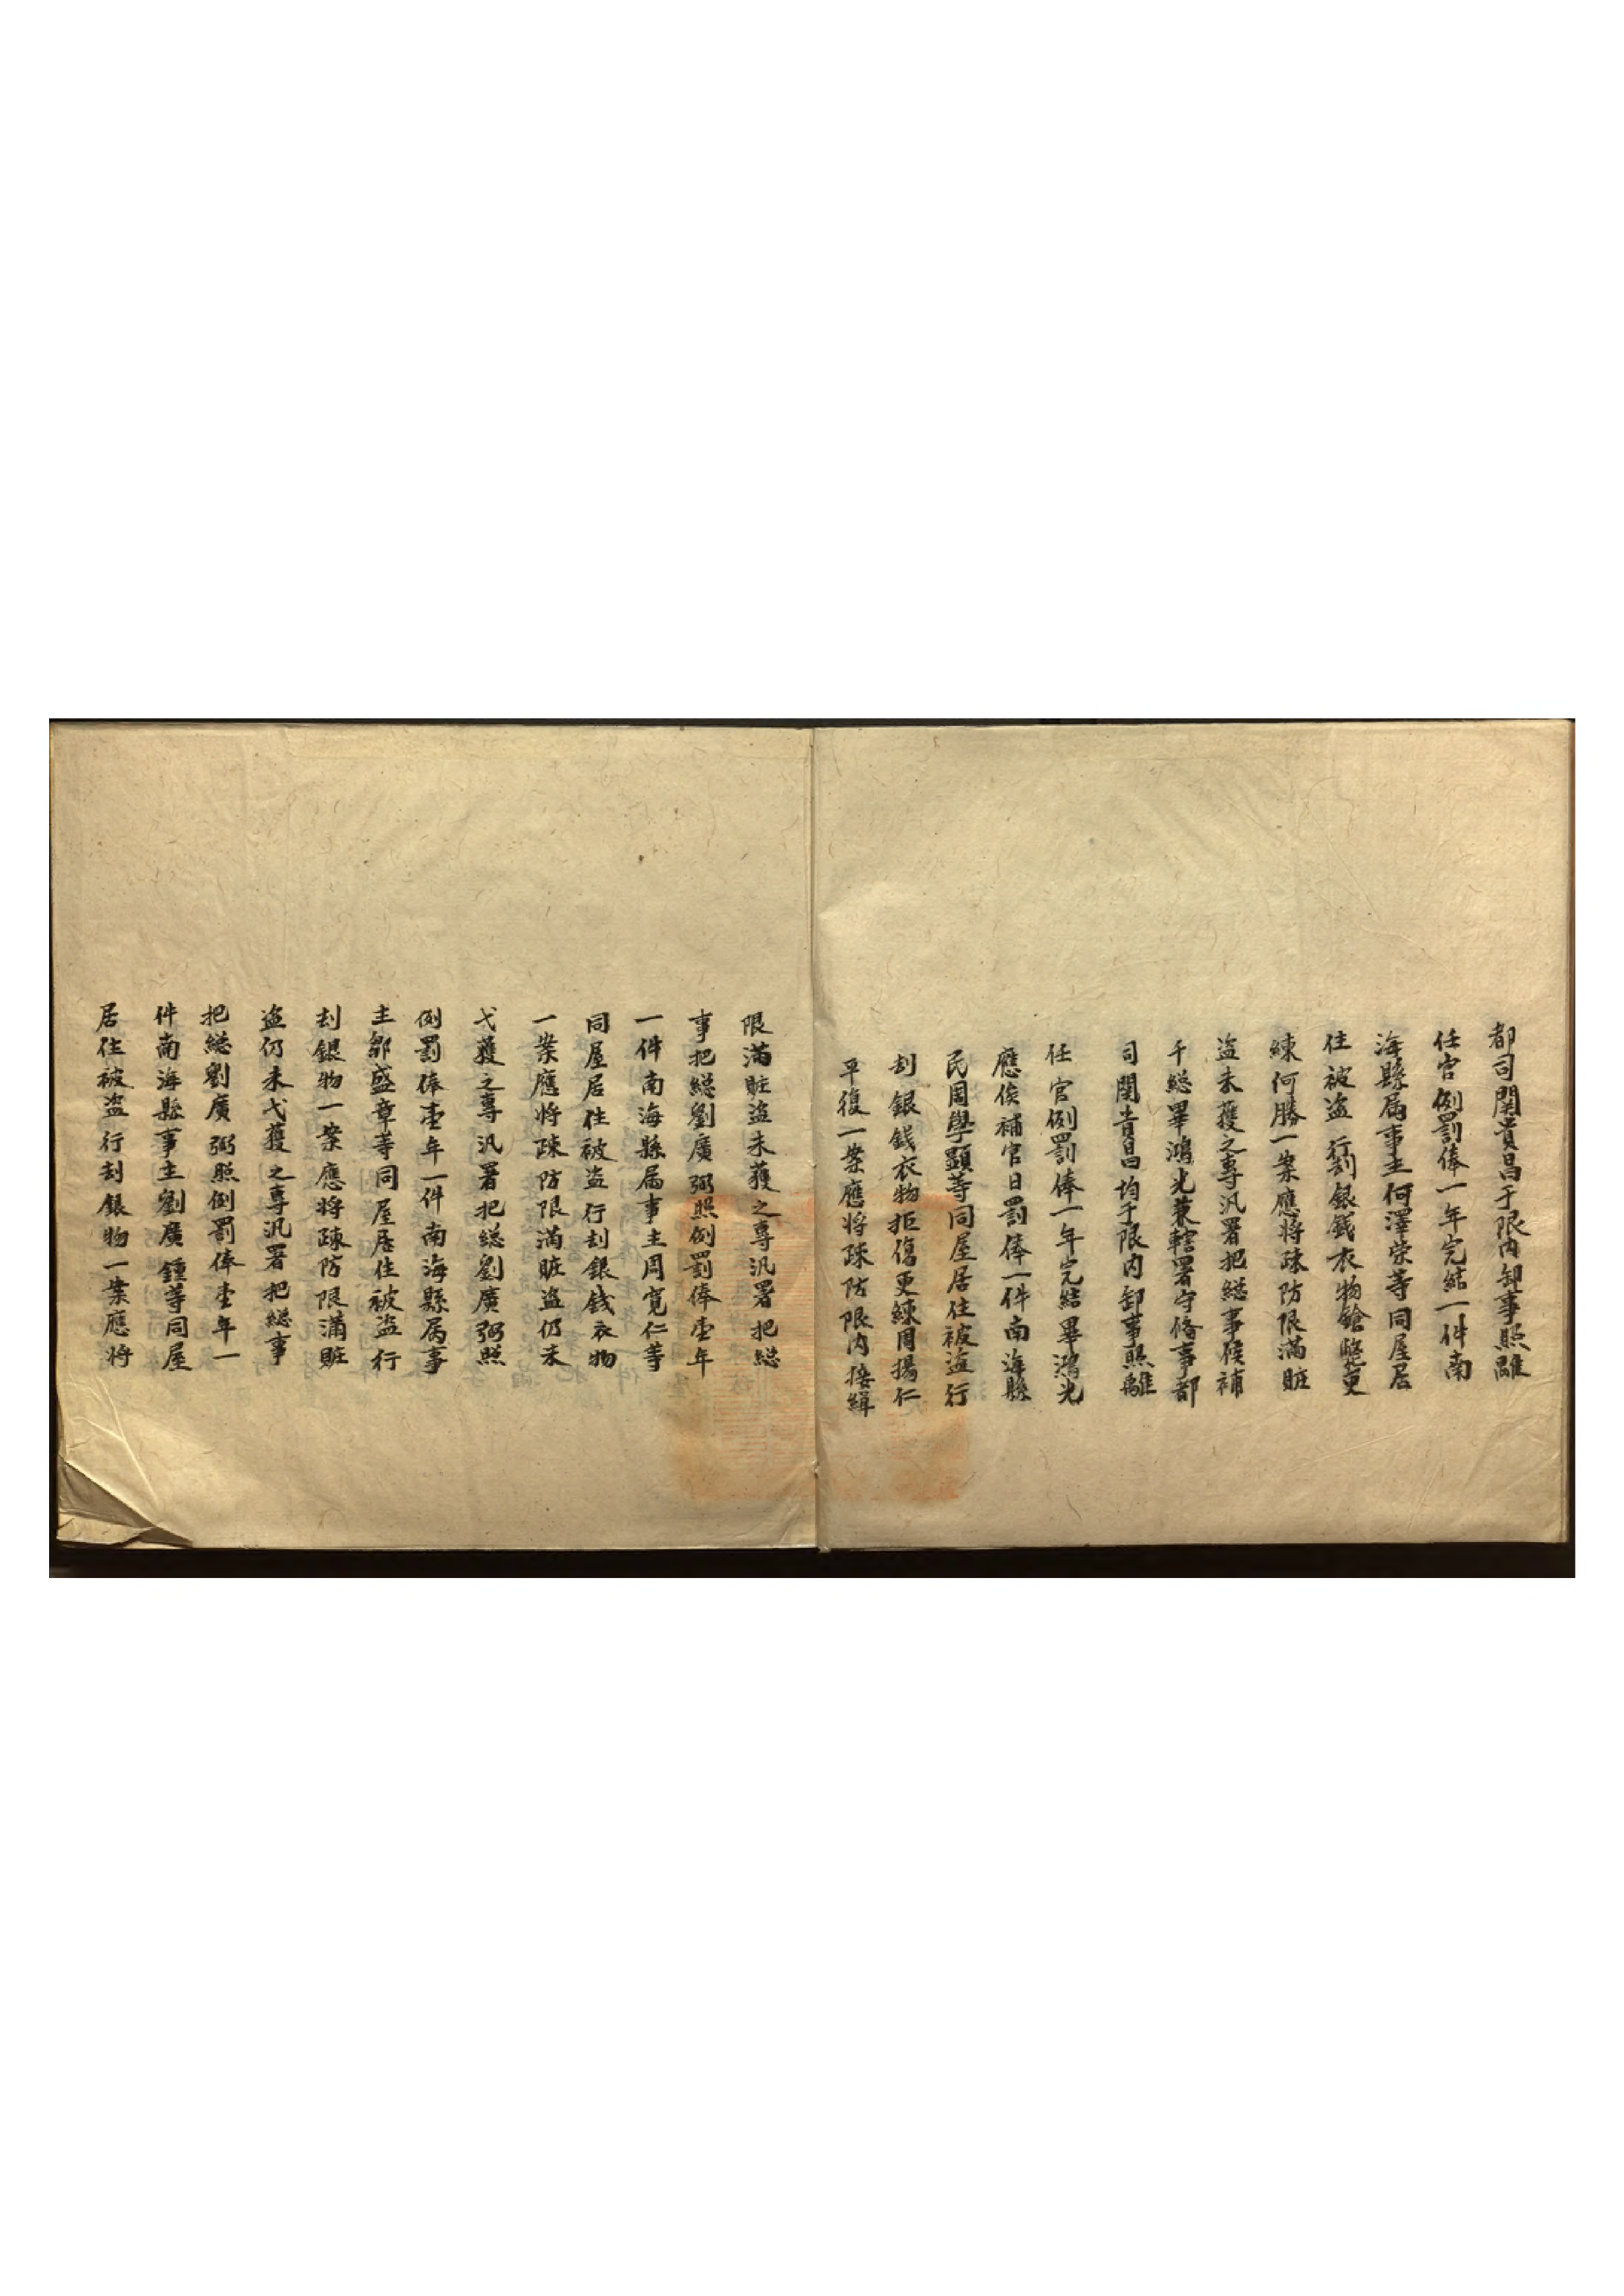 都司関貴昌于限內卸事照離
任官例罰俸一年完結一件南
海縣屬事主何澤荣等同屋居
住被盗行刦銀錢衣物鎗斃更
練何勝一案應将疎防限滿賍
盗未獲之專汛署把総事候補
千総畢鴻光兼轄署守俻事都
司関貴昌均于限內卸事照離
任官例罰俸一年完結畢鴻光
應俟補官日罰俸一件南海縣
民周學顕等同屋居住被盗行
刦銀錢衣物拒傷更練周揚仁
平復一案應将疎防限內接緝
限滿賍盗未獲之專汛署把総
事把総劉廣弼照例罰俸壹年
一件南海縣属事主周寛仁等
同屋居住被盗行刦銀錢衣物
一案應将疎防限滿賍盗仍未
弋獲之專汛署把総劉廣弼照
例罰俸壹年一件南海縣属事
主鄒盛章等同屋居住被盗行
刦銀物一案應将疎防限滿賍
盗仍未弋獲之專汛署把総事
把総劉廣弼照例罰俸壹年一
件南海縣事主劉廣鍾等同屋
居住被盗行刦銀物一案應将